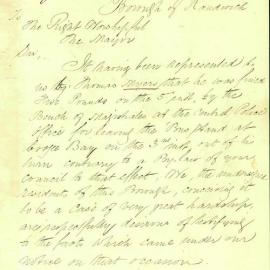 Borough of Randwick
To The Right Worshipful
The Mayor
Sir,
It having been represented to
us by Thomas Myers that he was fined
Two Pounds on the 5 inst, by the
Bench of Magistrates at the Central Police
office for leaving the Bus Stand at
Coogee Bay on the 3rd inst, out of his
turn contrary to a By-Law of your
council to that effect, We, the undersigned
residents of this Borough, conceiving it
to be a case of very great hardship
are, respectfully desirous of testifying
to the facts which came under our
notice on that occasion